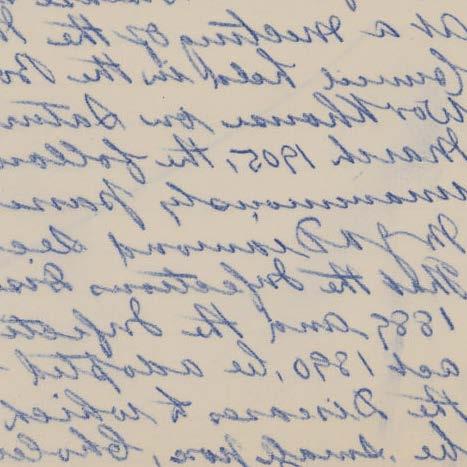 At a meeting of the
Council held in the Bo
Worthenbu on Satur
March 1905, the follow
unanimously passe
by Desmond sec
That the Infectious Dise
1889 and the Infectio
act 1890, be adopted
the Diseases to which
be. Small pox, Choler